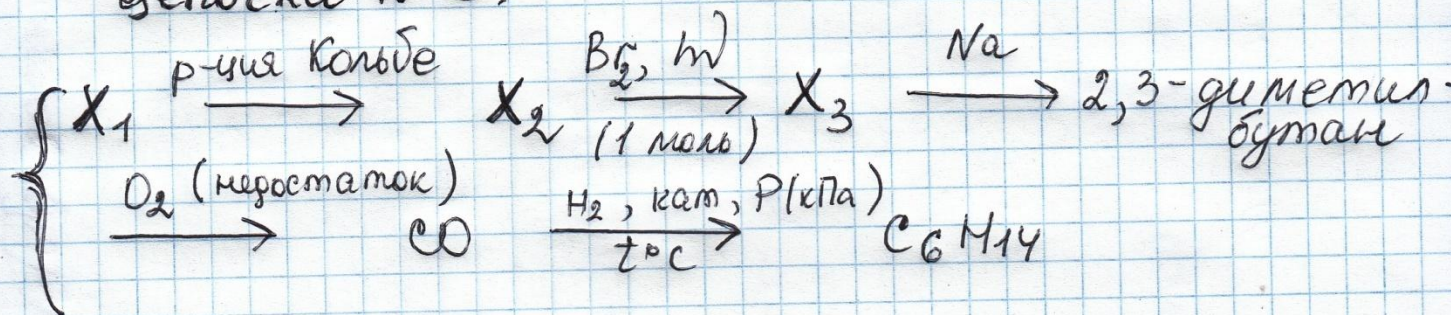 X₁ р-ция Кольбе → X₂ Br₂, hν (1 моль) → X₃ Na → 2,3-диметил-
бутан
O₂ (недостаток) → CO H₂, кат, P(кПа) t°C → C₆H₁₄